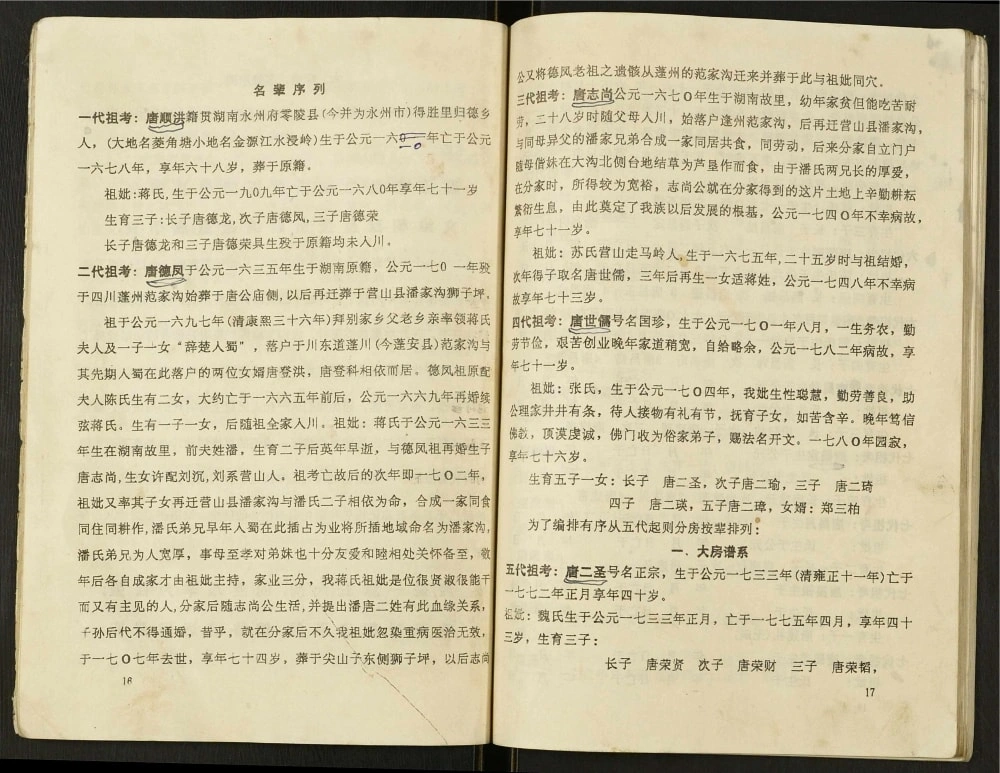 名辈序列
一代祖考：唐顺洪籍贯湖南永州府零陵县(今并为永州市)得胜里归德乡
人，(大地名菱角塘小地名金源江水浸岭)生于公元一六 年亡于公元
一六七八年，享年六十八岁，葬于原籍。
祖妣:蒋氏,生于公元一九0九年亡于公元一六八0年享年七十一岁
生育三子:长子唐德龙,次子唐德凤,三子唐德荣
长子唐德龙和三子唐德荣具生殁于原籍均未入川。
二代祖考：唐德凤于公元一六三五年生于湖南原籍，公元一七0 一年殁
于四川蓬州范家沟始葬于唐公庙侧,以后再迁葬于营山县潘家沟狮子坪.
祖于公元一六九七年(清康熙三十六年)拜别家乡父老乡亲率领蒋氏
夫人及一子一女“辞楚人蜀”，落户于川东道蓬川(今蓬安县)范家沟与
其先期人蜀在此落户的两位女婿唐登洪，唐登科相依而居。德凤祖原配
夫人陈氏生有二女，大约亡于一六六五年前后，公元一六六九年再婚续
弦蒋氏。生有一子一女，后随祖全家人川。祖妣：蒋氏于公元一六三三
年生在湖南故里，前夫姓潘，生育二子后英年早逝，与德凤祖再婚生子
唐志尚,生女许配刘沉,刘系营山人。祖考亡故后的次年即一七0二年，
祖妣又率其子女再迁营山县潘家沟与潘氏二子相依为命，合成一家同食
同住同耕作,潘氏弟兄早年人蜀在此插占为业将所插地域命名为潘家沟,
潘氏弟兄为人宽厚，事母至孝对弟妹也十分友爱和睦相处关怀备至，敬
年后各自成家才由祖妣主持，家业三分，我蒋氏祖妣是位很贤淑很能干
而又有主见的人,分家后随志尚公生活,并提出潘唐二姓有此血缘关系，
子孙后代不得通婚，昔乎，就在分家后不久我祖妣忽染重病医治无效，
于一七0七年去世，享年七十四岁，葬于尖山子东侧狮子坪，以后志尚
16
公又将德凤老祖之遗骸从蓬州的范家沟迁来并葬于此与祖妣同穴。
三代祖考：唐志尚公元一六七0年生于湖南故里，幼年家贫但能吃苦耐
劳，二十八岁时随父母入川，始落户逢州范家沟，后再迁营山县潘家沟，
与同母异父的潘家兄弟合成一家同居共食，同劳动，后来分家自立门户
随母偕妹在大沟北侧台地结草为芦垦作而食，由于潘氏两兄长的厚爱，
在分家时，所得较为宽裕，志尚公就在分家得到的这片土地上辛勤耕耘
繁衍生息，由此奠定了我族以后发展的根基，公元一七四0年不幸病故，
享年七十一岁。
祖妣：苏氏营山走马岭人,生于一六七五年，二十五岁时与祖结婚，
次年得子取名唐世儒，三年后再生一女适蒋姓，公元一七四八年不幸病
故享年七十三岁。
四代祖考：唐世儒号名国珍，生于公元一七0一年八月，一生务农，勤
劳节俭，艰苦创业晚年家道稍宽，自给略余，公元一七八二年病故，享
年七十一岁。
祖妣：张氏，生于公元一七0四年，我妣生性聪慧，勤劳善良，助
公理家井井有条，待人接物有礼有节，抚育子女，如苦含辛。晚年笃信
佛教，顶漠虔诚，佛门收为俗家弟子，赐法名开文。一七八0年园寂，
享年七十六岁。
生育五子一女：长子 唐二圣，次子唐二瑜，三子 唐二琦
四子 唐二瑛，五子唐二璋，女婿：郑三柏
为了编排有序从五代起则分房按辈排列：
一．大房谱系
五代祖考：唐二圣号名正宗，生于公元一七三三年(清雍正十一年)亡于
一七七二年正月享年四十岁。
祖妣：魏氏生于公元一七三三年正月，亡于一七七五年四月，享年四十
三岁，生育三子：
长子 唐荣贤 次子 唐荣财 三子 唐荣韬，
17